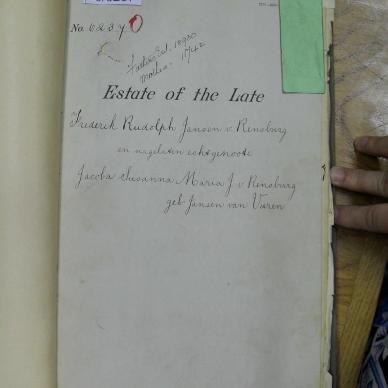 No. 6237
Estate of the Late
Frederik Rudolph Jansen v. Rensburg
en nagelaten echtgenoote
Jacoba Susanna Maria J. v. Rensburg
geb Jansen van Vuren